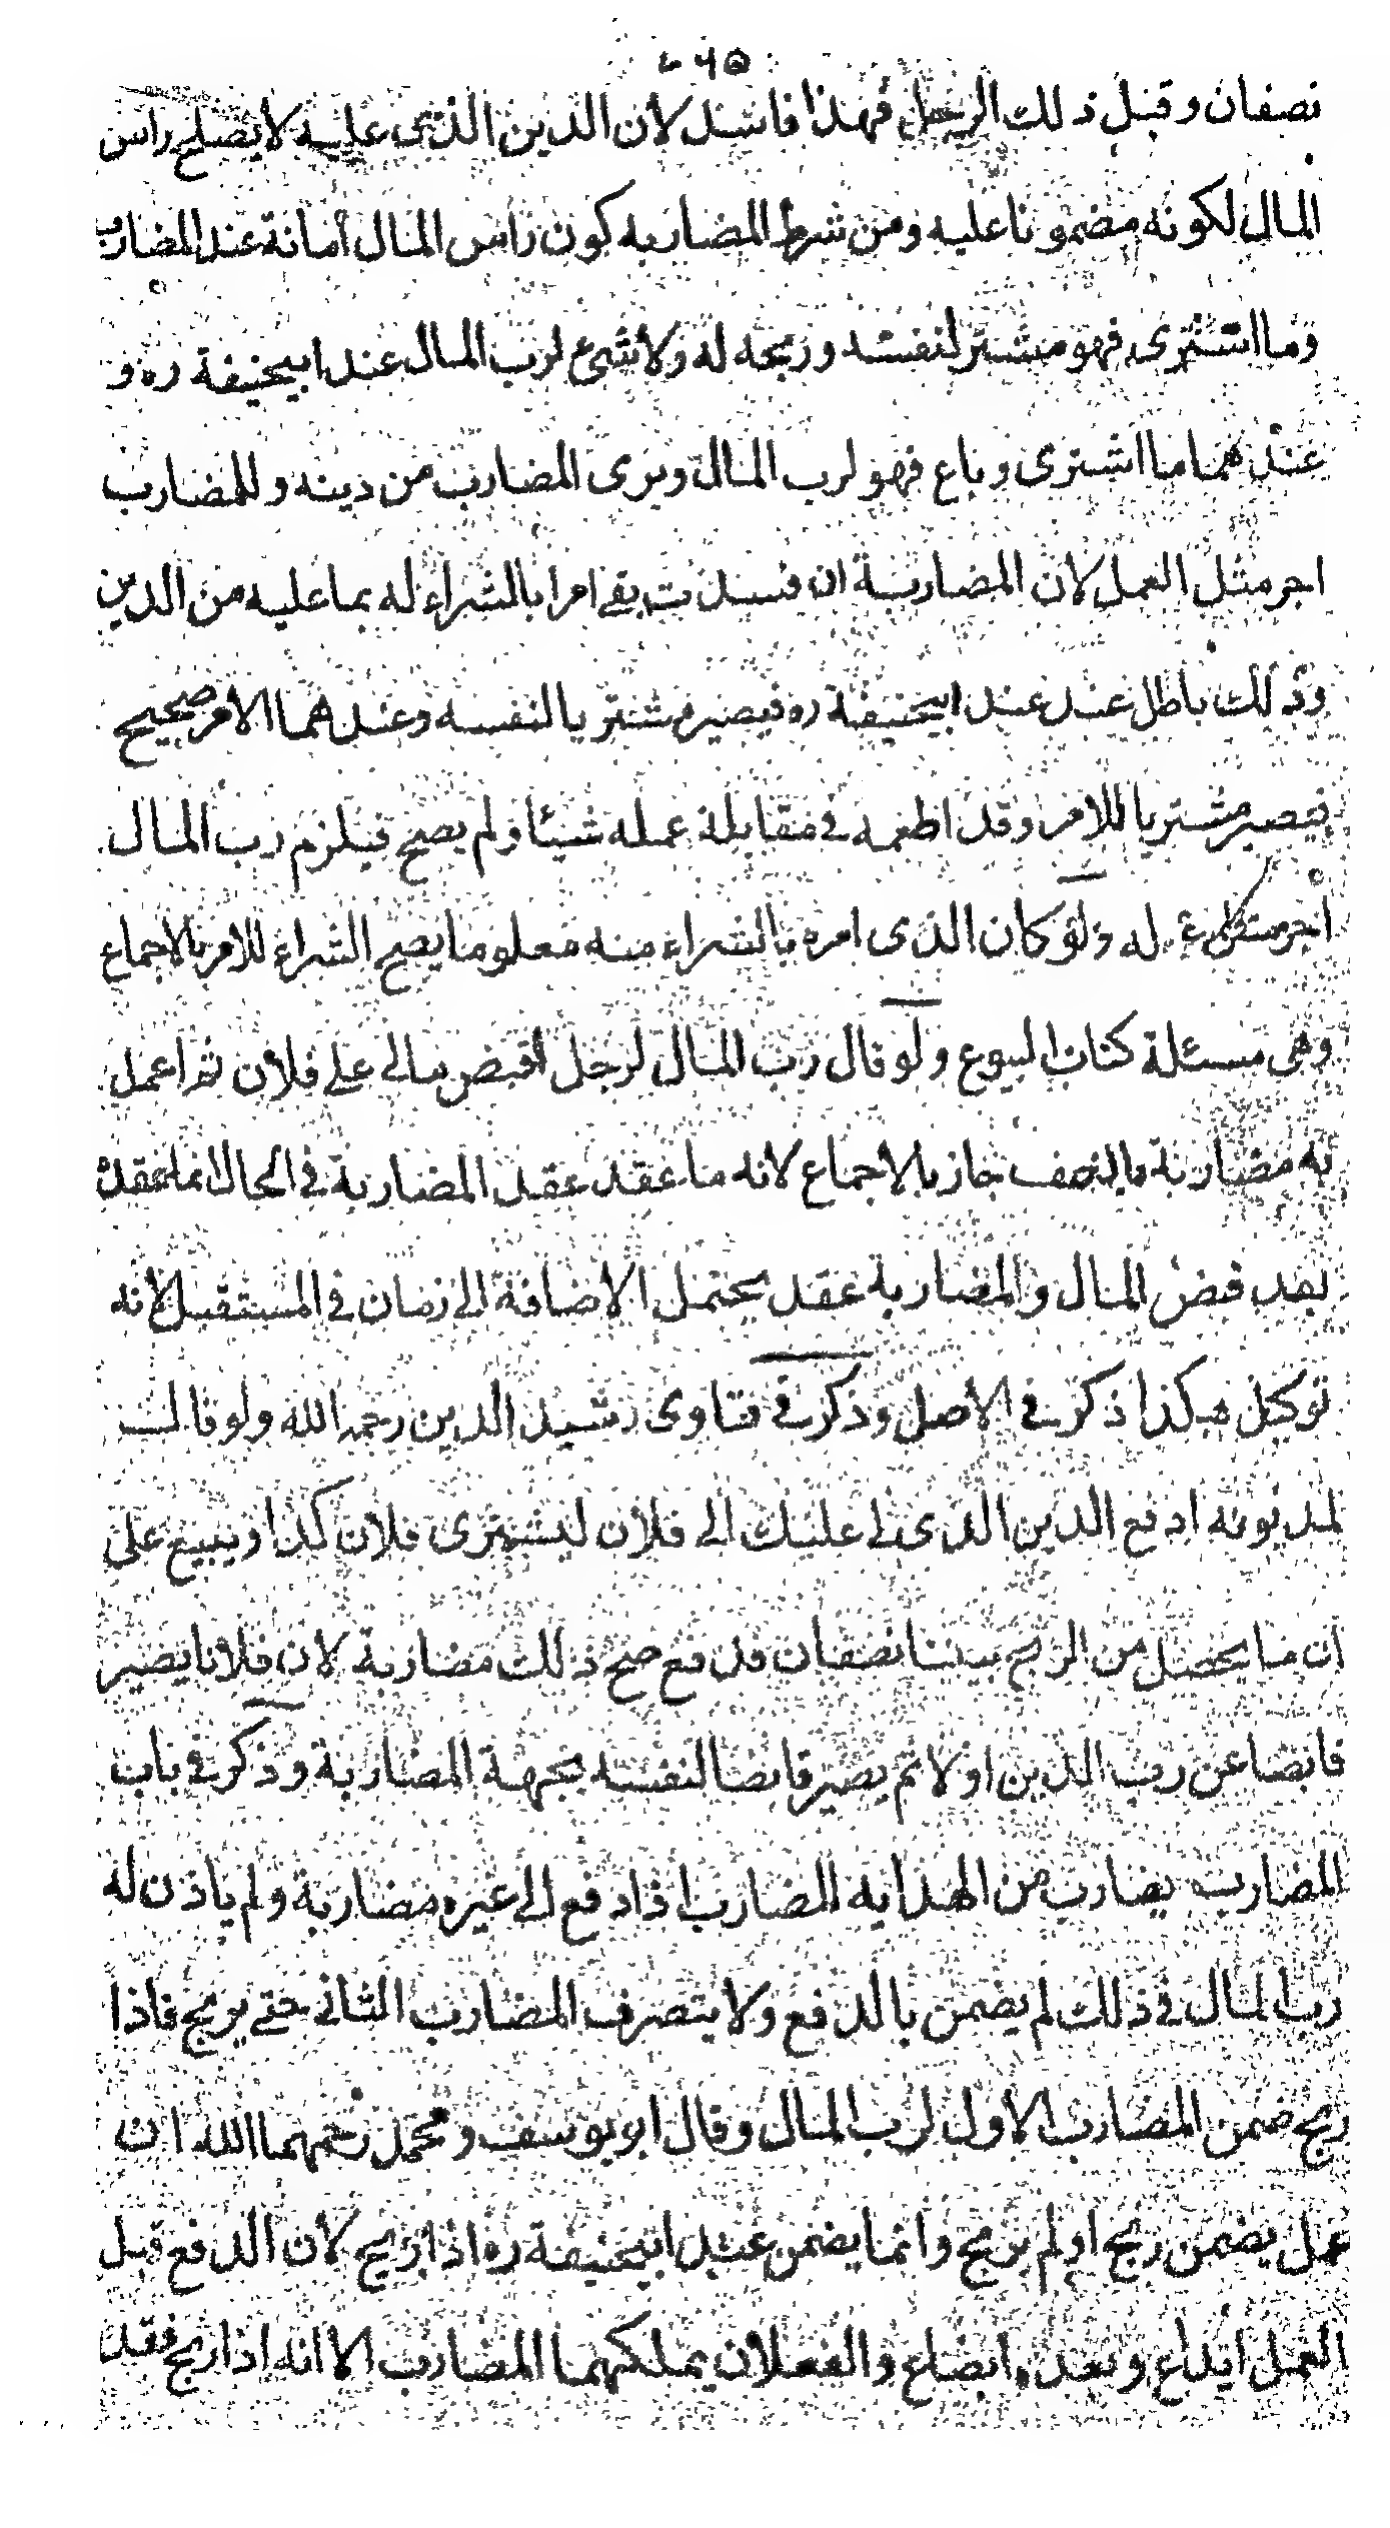 ٦٤٥
نصفان وقبل ذلك الرجل فهذا فاسد لان الدين الذى عليه لا يصلح راس
المال لكونه مضمونا عليه ومن شرط المضاربه كون راس المال أمانة عند المضارب
وما اشترى فهو مشتر لنفسه وربحه له ولا شىء لرب المال عند ابيحنيفة ره و
عندهما ما اشترى وباع فهو لرب المال ويرى المضارب من دينه وللمضارب
اجر مثل العمل لان المضاربة ان فسدت بقى امرا بالشراء له بما عليه من الدين
وذلك باطل عند عند ابيحنيفة ره فيصير مشتريا لنفسه وعندهما الامر صحيح
فيصير مشتريا للامر وقد اطعمه فى مقابلة عمله شيئا ولم يصح فيلزم رب المال
اجر مثل عمله ولو كان الذى امره بالشراء منه معلوما يصح الشراء للامر بالاجماع
وهى مسئلة كتاب البيوع ولو قال رب المال لرجل اقبض مالى على فلان ثم اعمل
به مضاربة بالنصف جاز بالاجماع لانه ما عقد عقد المضاربة فى الحال انما عقد
بعد قبض المال والمضاربة عقد يحتمل الاضافة الى زمان فى المستقبل لانه
توكيل هكذا ذكر فى الاصل وذكر فى فتاوى رشيد الدين رحمه الله ولو قال
لمديونه ادفع الدين الذى لى عليك الى فلان ليشترى فلان كذا ويبيع على
ان ما يحصل من الربح بيننا نصفان فدفع صح ذلك مضاربة لان فلانا يصير
قابضا عن رب الدين اولا ثم يصير قابضا لنفسه بجهة المضاربة وذكر فى باب
المضارب يضارب من الهدايه المضارب اذا دفع الى غيره مضاربة ولم ياذن له
رب المال فى ذلك لم يضمن بالدفع ولا يتصرف المضارب الثانى حتى يربح فاذا
ربح ضمن المضارب الاول لرب المال وقال ابو يوسف ومحمد رحمهما الله ان
عمل يضمن ربح او لم يربح وانما يضمن عند ابيحنيفة ره اذا ربح لان الدفع قبل
العمل ايداع وبعده ابضاع والفعلان يملكهما المضارب الا انه اذا ربح فقد